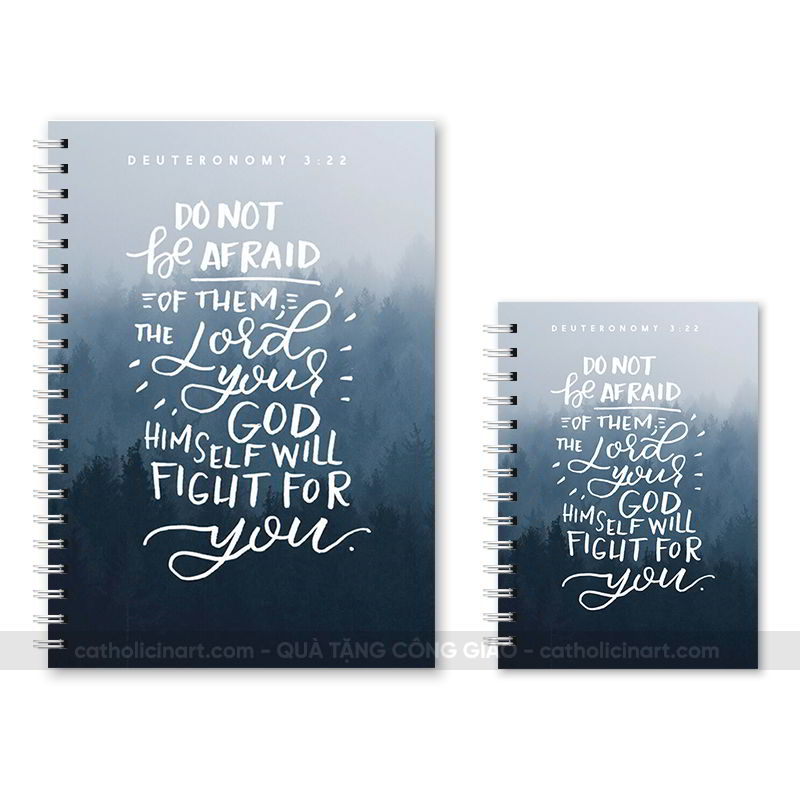 DEUTERONOMY 3:22
DO NOT
be AFRAID
OF THEM;
THE Lord
your
GOD
HIMSELF WILL
FIGHT FOR
you.
DEUTERONOMY 3:22
DO NOT
be AFRAID
OF THEM;
THE Lord
your
GOD
HIMSELF WILL
FIGHT FOR
you.
catholicinart.com - QUÀ TẶNG CÔNG GIÁO - catholicinart.com